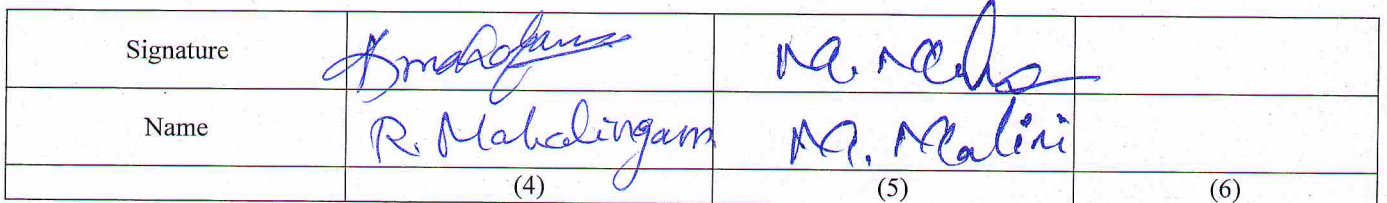 Signature
Name R. Mahalingam M. Malini
(4) (5) (6)